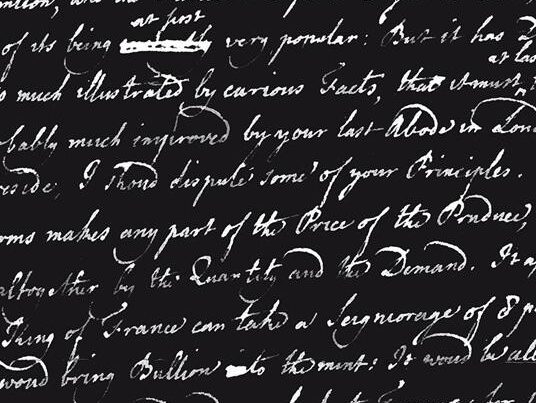 at first
of its being very popular: But it has
at las
much illustrated by curious Facts, that it must
bably much improved by your last Abode in Lon
eside, I shoud dispute some of your Principles.
rms makes any part of the Price of the Produce,
altogether by the Quantity and the Demand. It ap
King of France can take a Seigniorage of 8 p
woud bring Bullion to the mint: It woud be all